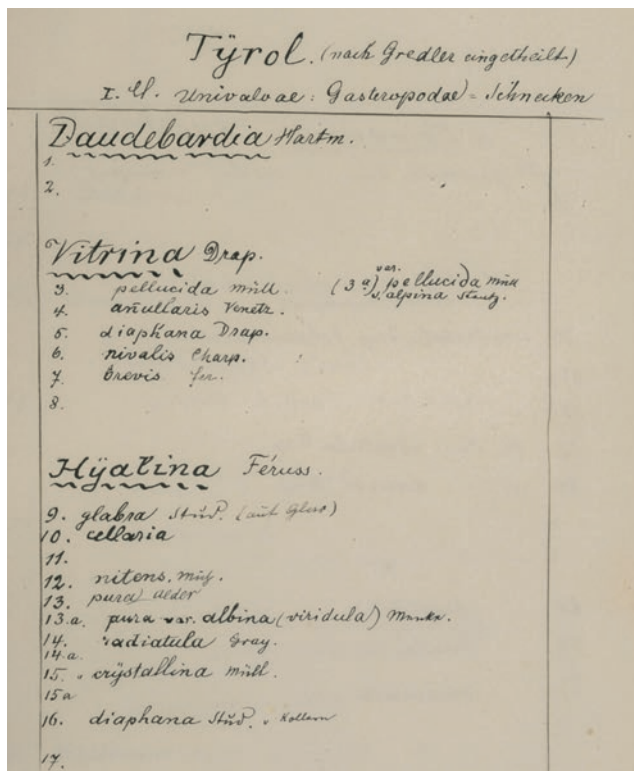 Tÿrol. (nach Gredler eingetheilt)
I. Cl. Univalvae: Gasteropodae = Schnecken
Daudebardia Hartm.
1.
2.
Vitrina Drap.
3. pellucida Müll. (3 a) var. pellucida Müll
v. alpina
4. anullaris Venetz.
5. diaphana Drap.
6. nivalis Charp.
7. brevis Fer.
8.
Hÿalina Féruss.
9. glabra Stud. (aut
10. cellaria
11.
12. nitens.
13. pura Alder
13.a. pura var. albina (viridula) Menke.
14. radiatula Gray.
14.a.
15. crÿstallina Müll.
15a
16. diaphana Stud.
17.